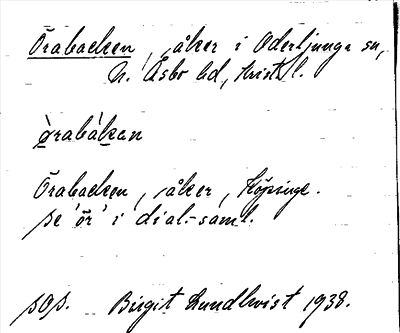 Örabacken, åker i Oderljunga sn,
N. Åsbo hd, Krist. l.
ö̀rabákan
Örabacken, åker, Köpinge.
se 'ör' i dial.-saml.
sOs. Birgit Lundkvist 1938.